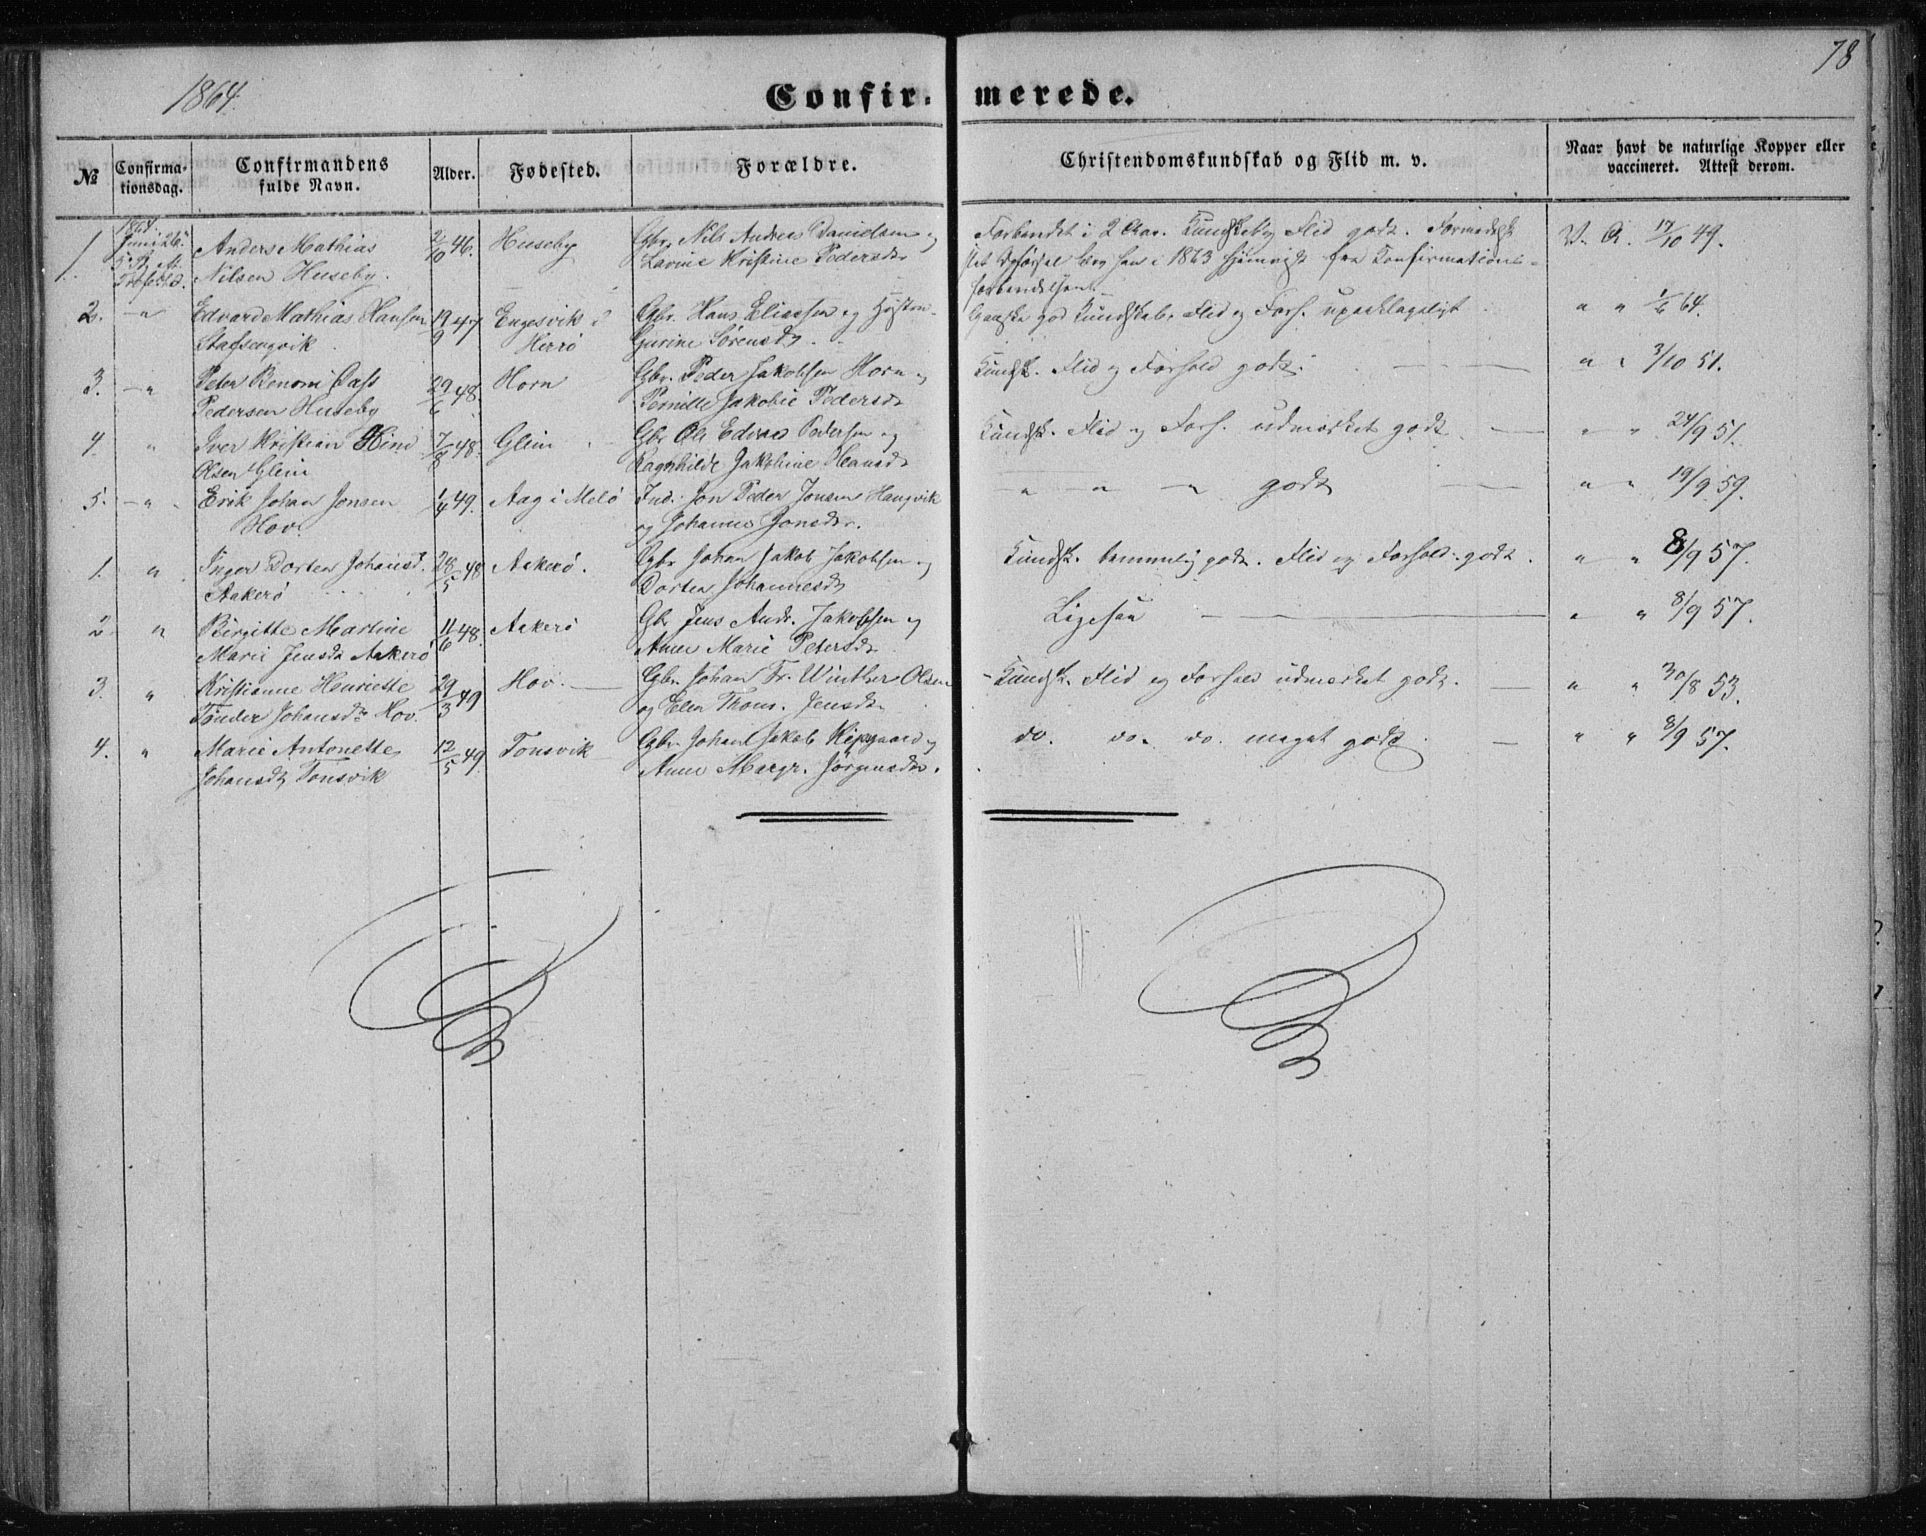 1864.
Confir-
merede.
78
№
Confirma-
tionsdag.
Confirmandens
fulde Navn.
Alder.
Fødested.
Forældre.
Christendomskundskab og Flid m. v.
Naar havt de naturlige Kopper eller
vaccineret. Attest derom.
1.
1864.
Juni 26
Anders Mathias
Nilsen Huseby.
2/10 46.
Huseby
Gbr. Nils Andreas Danielsen og
Lavine Kristine Pedersdr
Forberedet i 2 Aar. Kundskab og Flid godt.
i 1863 hjemvist fra Confirmations-
forberedelsen.
V. A. 17/10 49.
2.
— "
Edvard Mathias Hansen
19/9 47
Engesvik i
Herrø
Gbr. Hans Eliassen og Hustru
Gurine Sørensdr.
Ganske god Kundskab, Flid og Forh. upaaklageligt
" " 1/6 64.
3.
— "
Peter Benoni Dass
Pedersen Huseby
29/6 48.
Horn
Gbr. Peder Jakobsen Horn og
Pernille Jakobie Pedersdr
Kundsk. Flid og Forhold godt.
" " 3/10 51.
4.
"
Iver Kristian Hind
Olsen Glein
7/8 48.
Glein
Gbr Ole Edvard Pedersen og
Ragnhilde Jakobine Hansdr
Kundsk. Flid og Forh. udmærket godt
" " 24/9 51.
5.
— "
Erik Johan Jonsen
Hov.
1/4 49.
Aag i Melø
Ind. Jon Peder Jonsen Haugvik
og Johanna Jonsdr.
" " " godt
" " 19/9 59.
1.
"
Inger Dortea Johansd.
Aakerø
28/5 48
Aakerø.
Gbr Johan Jakob Jakobsen og
Dortea Johannesdr
Kundsk. temmelig godt. Flid og Forhold godt.
" " 8/9 57.
2.
"
Birgitte Martine
Marie Jensdr Aakerø
11/6 48.
Aakerø
Gbr Jens Andr. Jakobsen og
Anne Marie Petersdr
Ligesaa
" " 8/9 57.
3.
"
Kristianne Henriette
Tønder Johansdr Hov.
29/3 49
Hov.
Gbr. Johan Fr. Winther Olsen
og Elen Thom. Jensdr
Kundsk. Flid og Forhold udmærket godt.
" " 30/8 53.
4.
"
Marie Antonette
Johansdr Tonsvik
12/5 49.
Tonsvik
Gbr. Johan Jakob og
Anne Margr. Jørgensdr.
do. do. do. meget godt
" " 8/9 57.